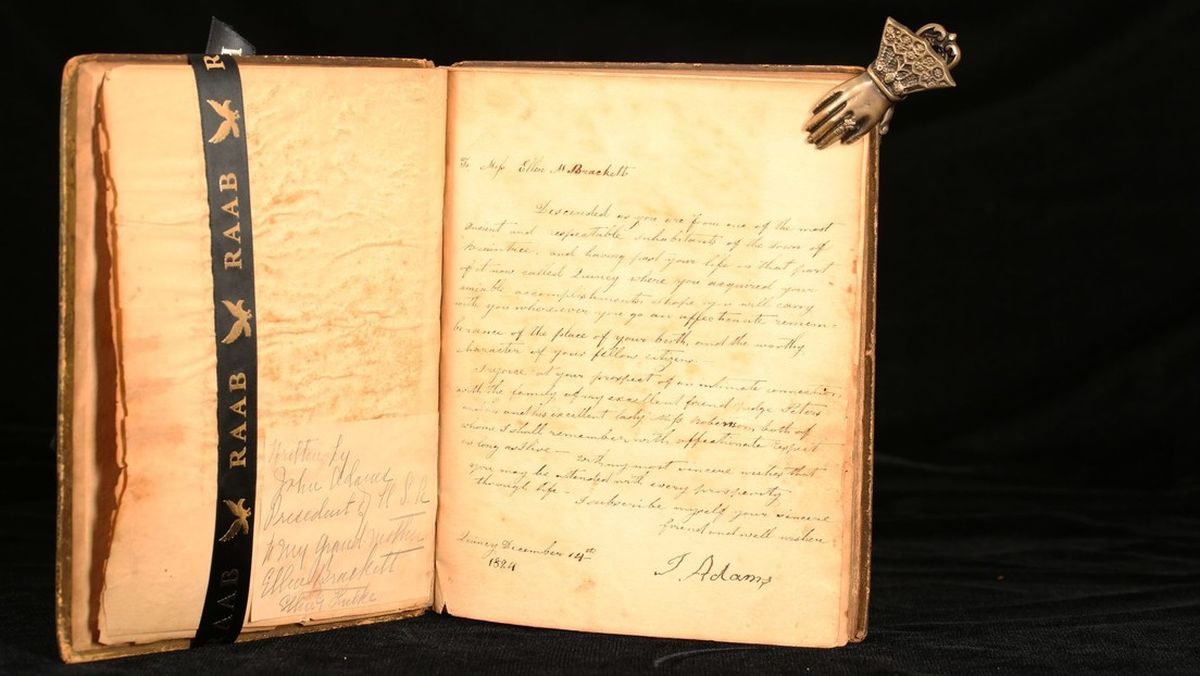 RAAB
RAAB
RAAB
AAB
Written by
John Adams
President of U S A
to my Grand mother
Ellen Brackett
To Miss Ellen M Brackett
Descended as you are from one of the most
ancient and respectable inhabitants of the town of
Braintree, and having past your life in that part
of it now called Quincy where you acquired your
amiable accomplishments, I hope you will carry
with you wherever you go an affectionate remem-
berance of the place of your birth, and the worthy
character of your fellow citizens.
I rejoice at your prospect of an intimate connection,
with the family of my excellent friend Judge Peters
and his excellent lady Miss Robenson, both of
whom I shall remember with affectionate respect
as long as I live — with my most sincere wishes that
you may be attended with every prosperity
through life — I subscribe myself your sincere
friend and well wisher
Quincy December 14th
1824
J. Adams